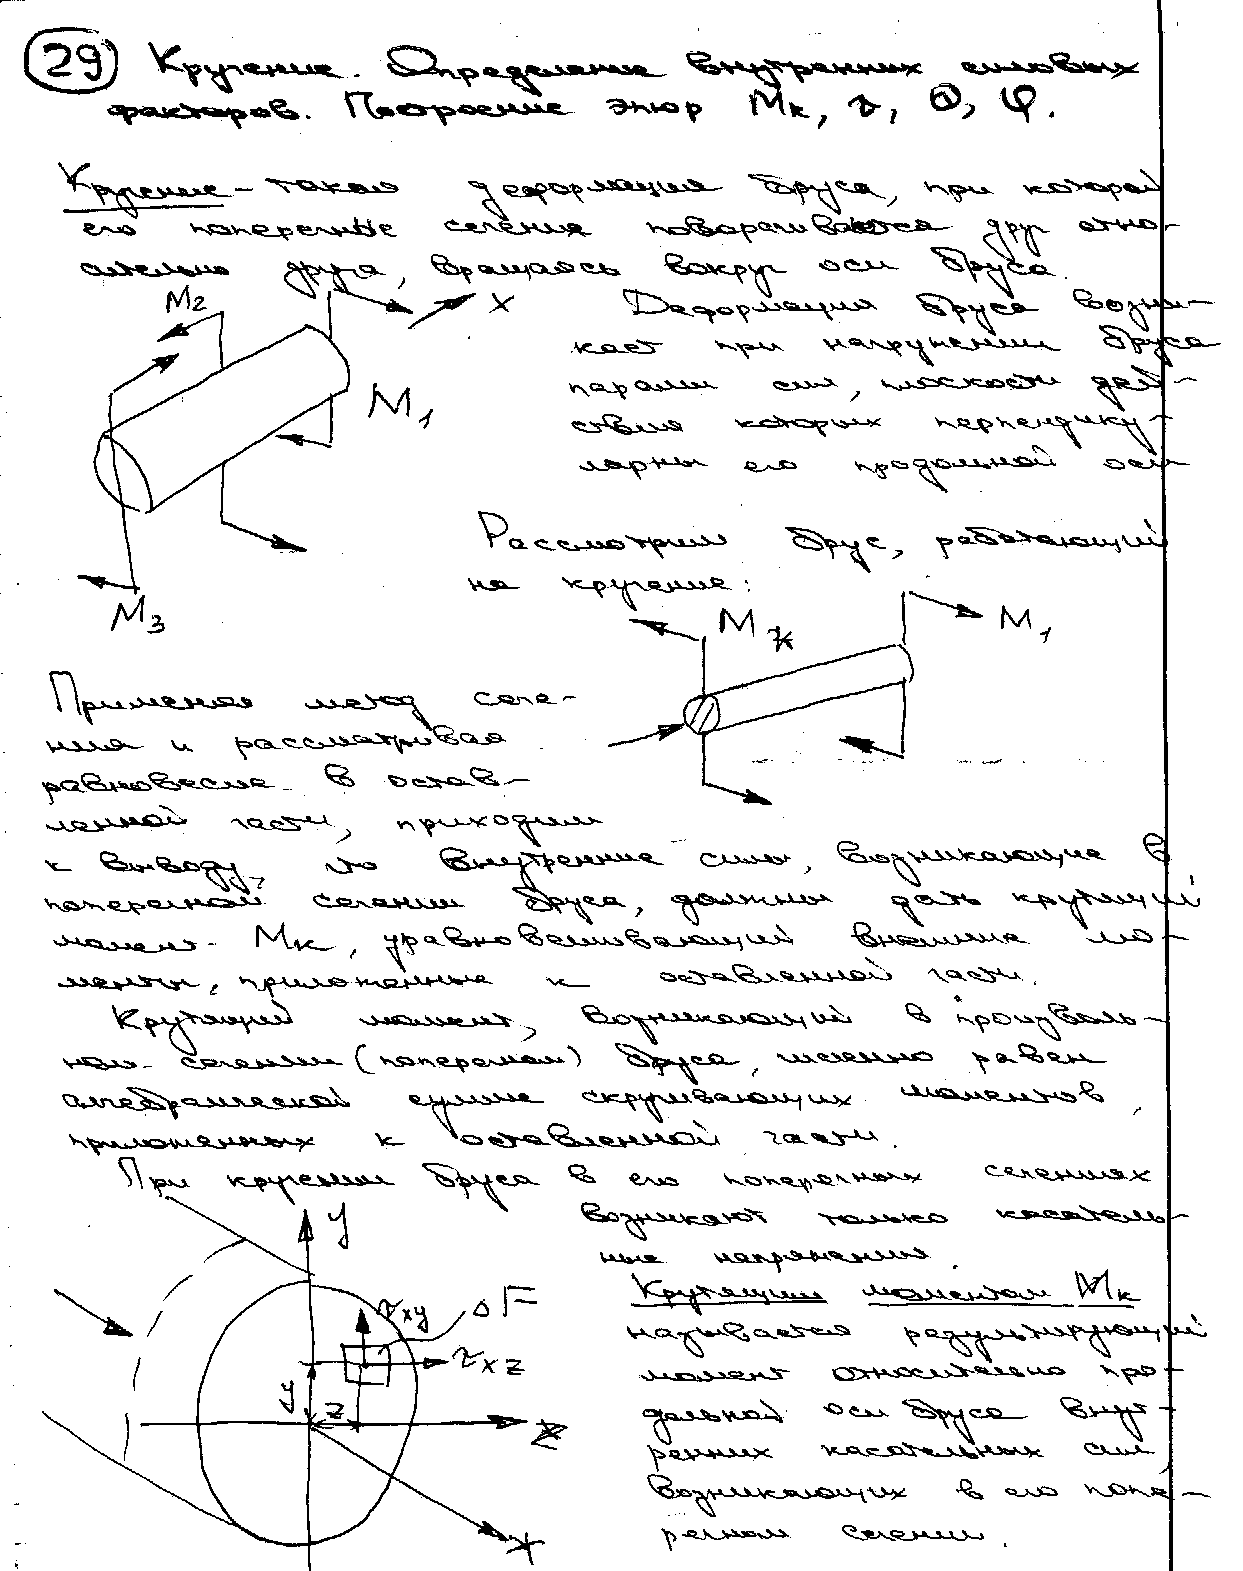 29 Кручение. Определение внутренних силовых
факторов. Построение эпюр Mк, τ, Θ, φ.
Кручение - такая деформация бруса, при которой
его поперечные сечения поворачиваются друг отно-
сительно друга, вращаясь вокруг оси бруса.
M2
X
Деформация бруса возни-
кает при нагружении бруса
M1
парами сил, плоскости дей-
ствия которых перпендику-
лярны его продольной оси
Рассмотрим брус, работающий
на кручение:
M3
Mк
M1
Применяя метод сече-
ния и рассматривая
равновесие в остав-
ленной части, приходим
к выводу, что внутренние силы, возникающие в
поперечной сечении бруса, должны дать крутящий
момент Mк, уравновешивающий внешние мо-
менты, приложенные к оставленной части.
Крутящий момент, возникающий в произволь-
ном сечении (поперечном) бруса, численно равен
алгебраической сумме скручивающих моментов,
приложенных к оставленной части.
При кручении бруса в его поперечных сечениях
возникают только касатель-
ные напряжения.
y
τxy
ΔF
τxz
y
z
z
x
Крутящим моментом Mк
называется результирующий
момент относительно про-
дольной оси бруса внут-
ренних касательных сил,
возникающих в его попе-
речном сечении.